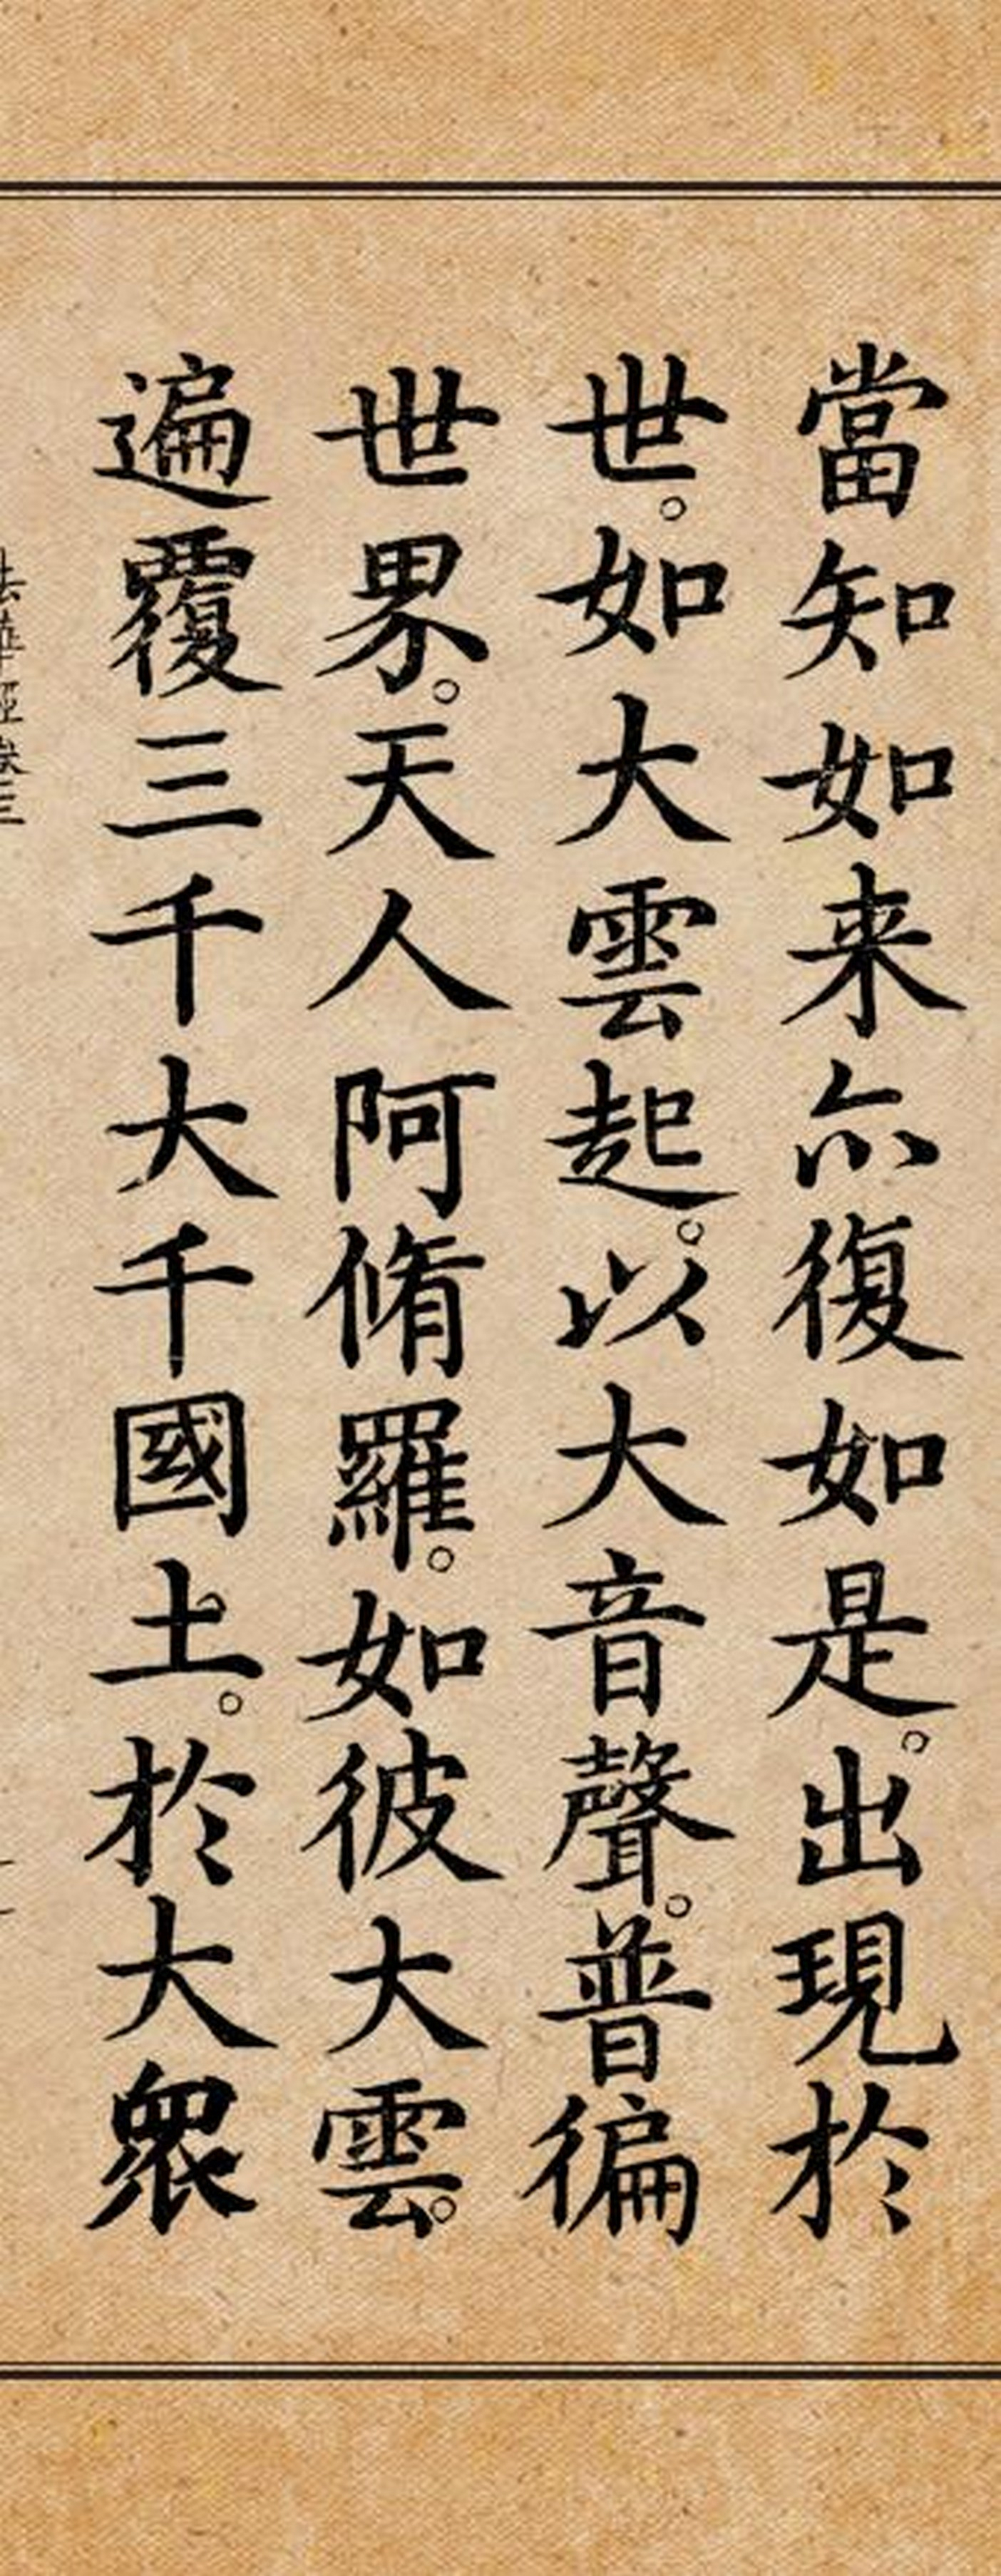 當知如来亦復如是。出現於
世。如大雲起。以大音聲。普徧
世界。天人阿脩羅。如彼大雲。
遍覆三千大千國土。於大眾
法華經卷三